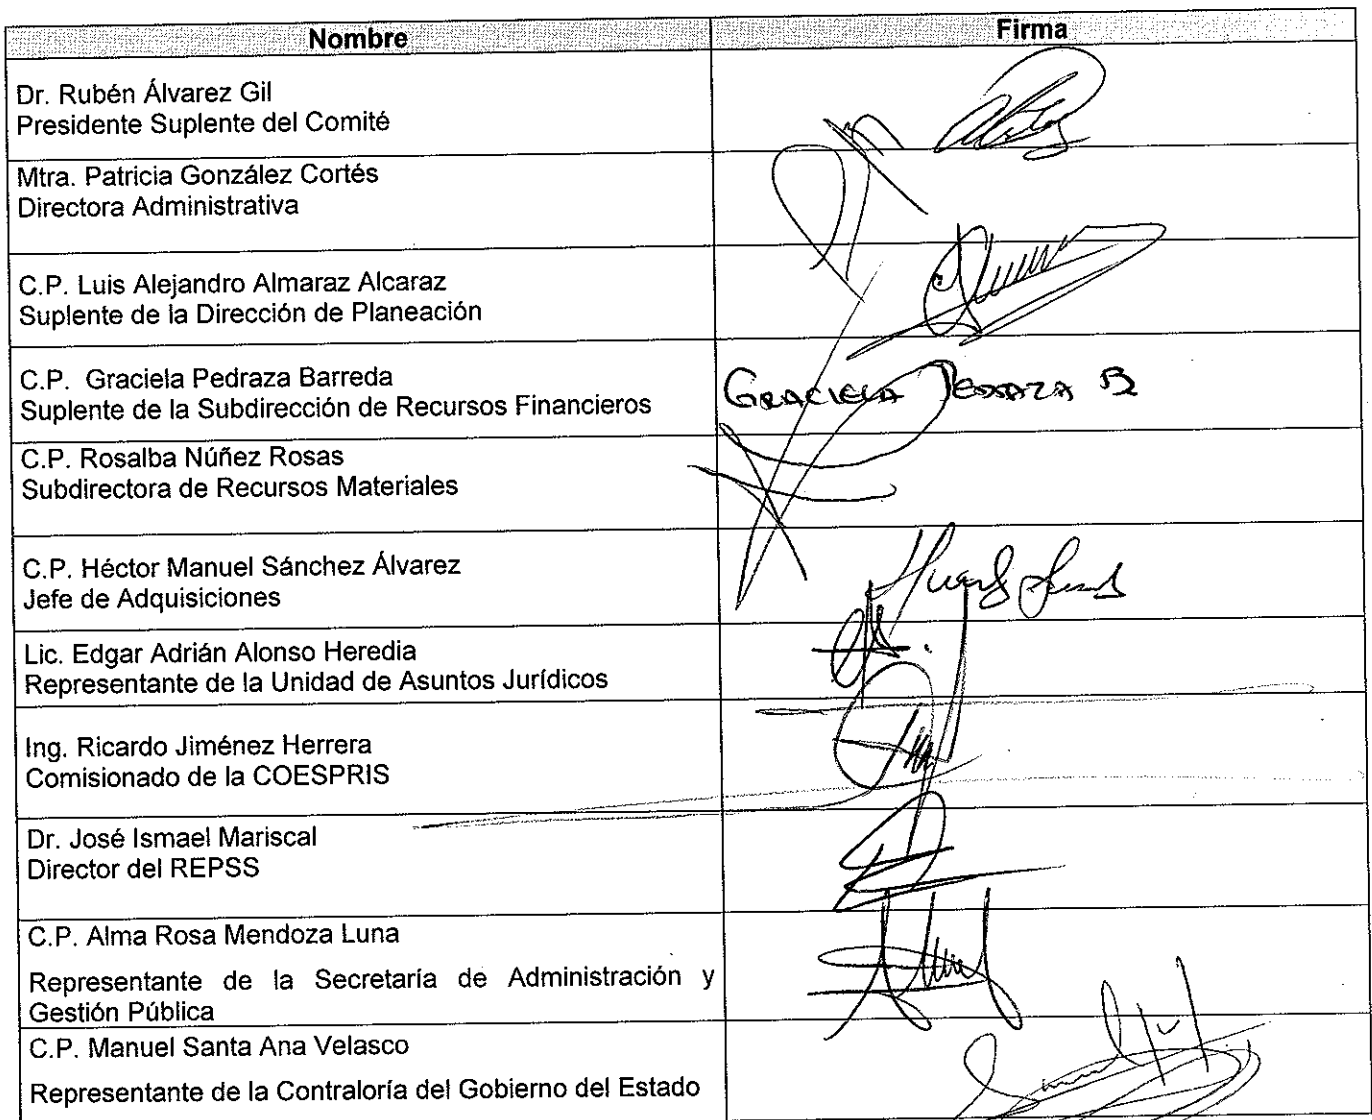 Nombre Firma
Dr. Rubén Álvarez Gil
Presidente Suplente del Comité
Mtra. Patricia González Cortés
Directora Administrativa
C.P. Luis Alejandro Almaraz Alcaraz
Suplente de la Dirección de Planeación
C.P. Graciela Pedraza Barreda
Suplente de la Subdirección de Recursos Financieros
GRACIELA PEDRAZA B
C.P. Rosalba Núñez Rosas
Subdirectora de Recursos Materiales
C.P. Héctor Manuel Sánchez Álvarez
Jefe de Adquisiciones
Lic. Edgar Adrián Alonso Heredia
Representante de la Unidad de Asuntos Jurídicos
Ing. Ricardo Jiménez Herrera
Comisionado de la COESPRIS
Dr. José Ismael Mariscal
Director del REPSS
C.P. Alma Rosa Mendoza Luna
Representante de la Secretaría de Administración y
Gestión Pública
C.P. Manuel Santa Ana Velasco
Representante de la Contraloría del Gobierno del Estado